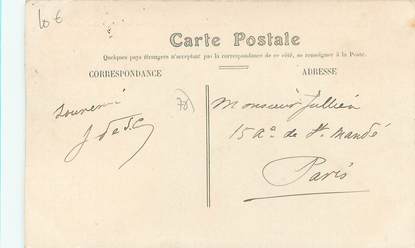 10 €
Carte Postale
Quelques pays étrangers n'acceptant pas la correspondance de ce côté, se renseigner à la Poste.
CORRESPONDANCE
ADRESSE
Souvenir
J de S.C
78)
Monsieur Jullien
15 Ae de St Mandé
Paris